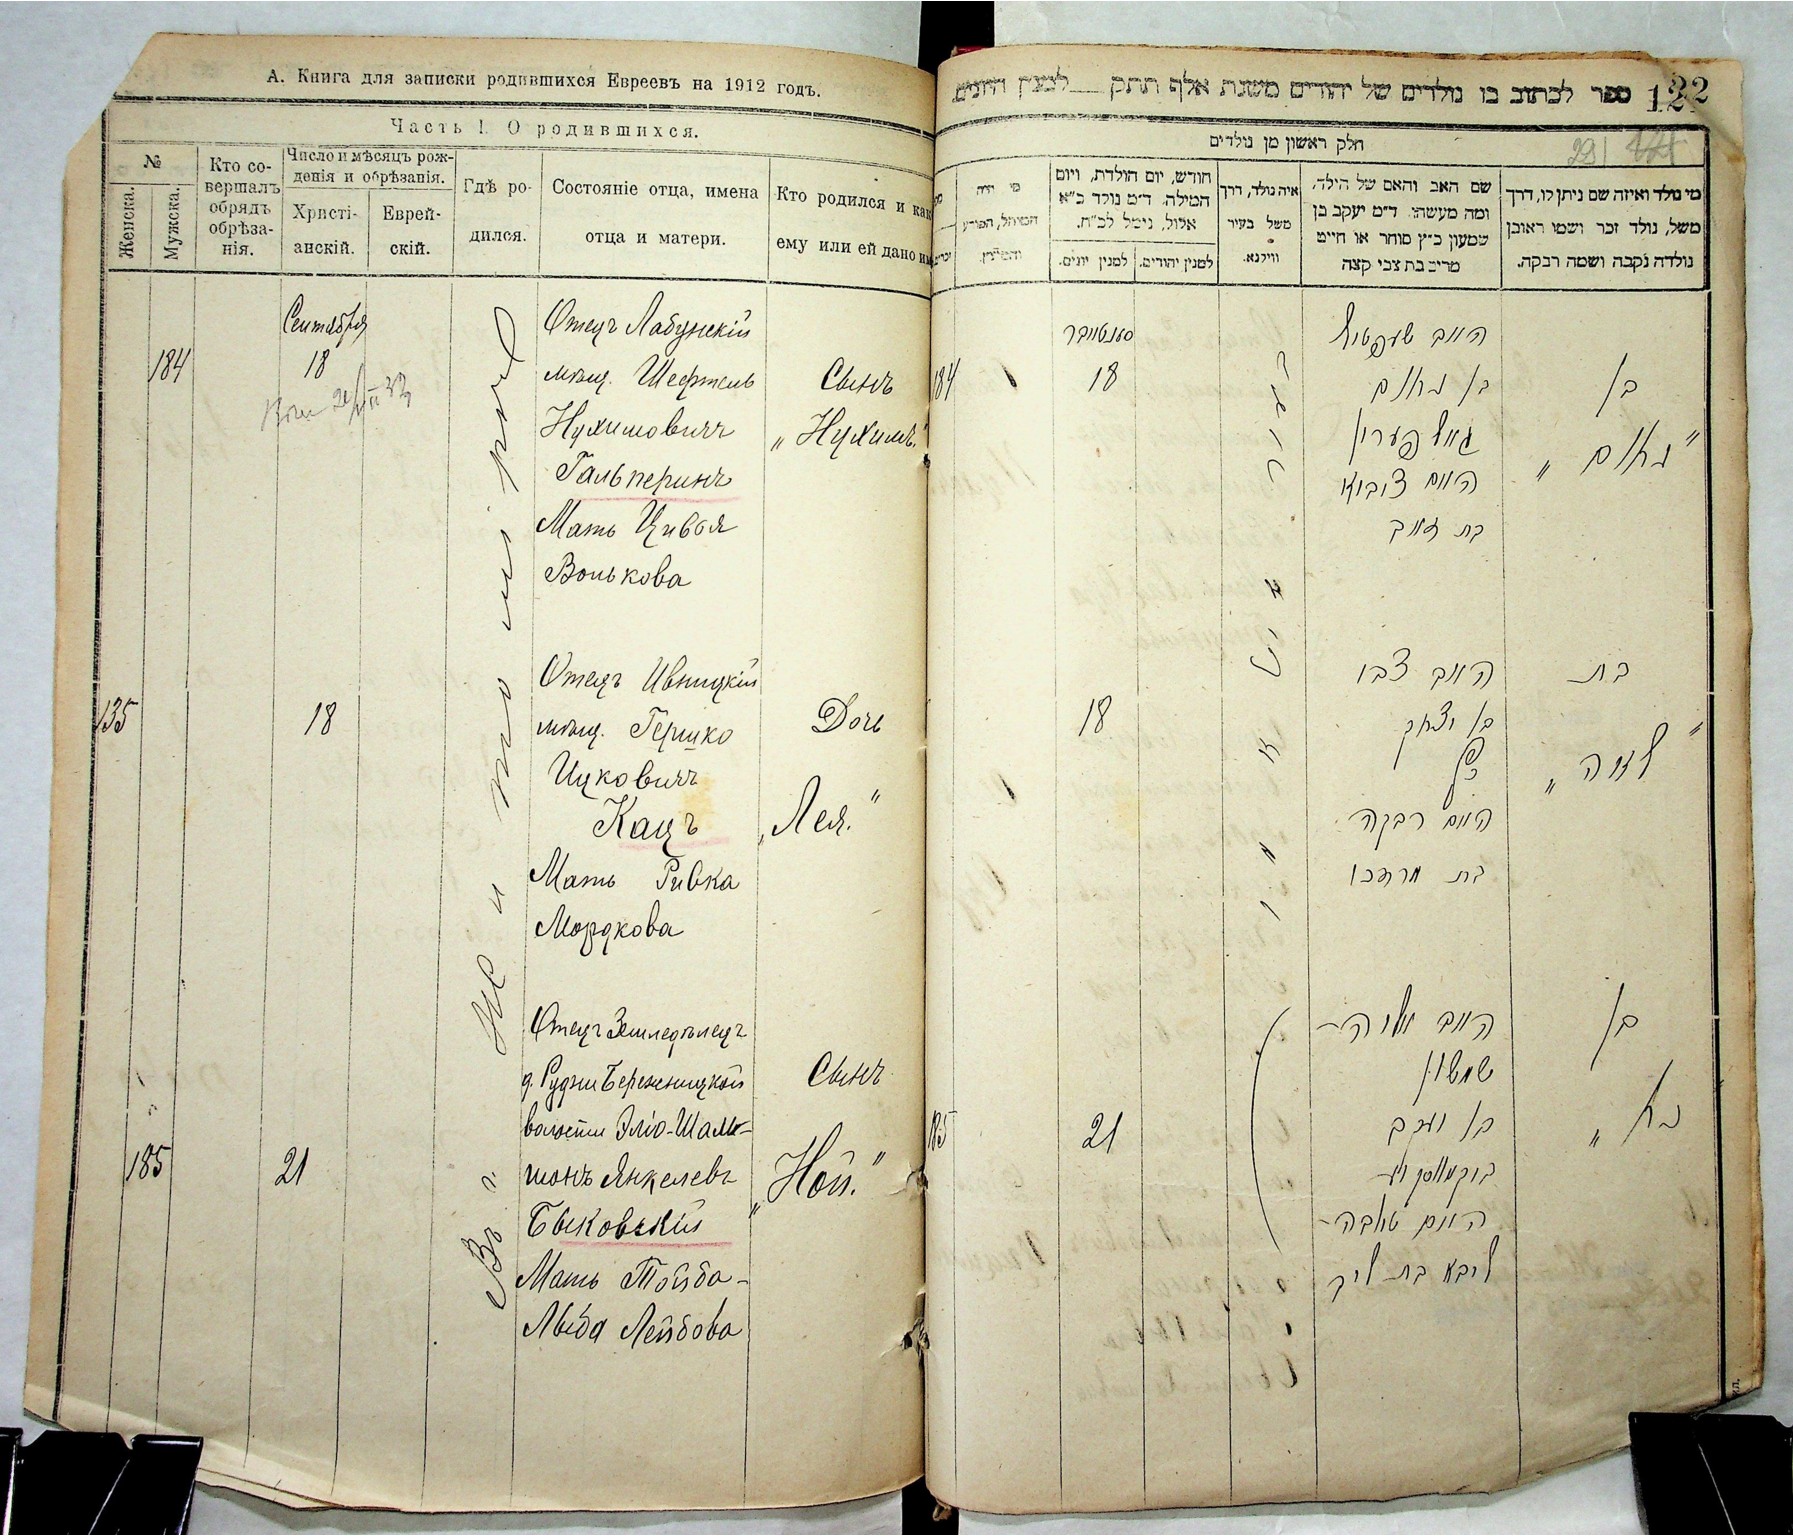 А. Книга для записки родившихся Евреевъ на 1912 годъ.
Часть I. О родившихся.
№
Женска.
Мужска.
Кто со-
вершалъ
обрядъ
обрѣза-
нія.
Число и мѣсяцъ рож-
денія и обрѣзанія.
Христі-
анскій.
Еврей-
скій.
Гдѣ ро-
дился.
Состояніе отца, имена
отца и матери.
Кто родился и как
ему или ей дано им
Сентября
184
18
Отецъ Лабунскій
мѣщ. Шефтель
Нухимовичъ
Гальперинъ
Мать Цивья
Волькова
Сынъ
„Нухимъ.“
135
18
Отецъ Ивницкій
мѣщ. Гершко
Ицковичъ
Кацъ
Мать Ривка
Мордкова
Дочь
„Лея.“
185
21
Отецъ Земледѣлецъ
д. Рудни Бережницкой
волости Эліо-Шам-
шонъ Янкелевъ
Быковскій
Мать Тойба-
Лыба Лейбова
Сынъ
„Ной.“
Въ г. Житомирѣ
ספר לכתוב בו נולדים של יהודים משנת אלף תתק למנין היונים
122
חלק ראשון מן נולדים
מי נולד ואיזה שם ניתן לו, דרך
משל, נולד זכר ושמו ראובן
נולדה נקבה ושמה רבקה.
שם האב והאם של הילד,
ומה מעשהו. ד״מ יעקב בן
שמעון כ״ץ סוחר או חייט
מרים בת צבי קצה
איה נולד, דרך
משל בעיר
ווילנא.
חודש, יום הולדת, ויום
המילה. ד״מ נולד כ״א
אלול, נימל לכ״ח.
למנין יהודים.
למנין יונים.
מי היה
המוהל, הפורע
והמוצץ.
סענטיובר
184
18
האב שעפטיל
בן נחום
גאלפערין
האם צוביא
בת זאב
בן
„נחום“
18
האב צבי
בן יצחק
כץ
האם רבקה
בת מרדכי
בת
„לאה“
185
21
האב אליה־
שמשון
בן יעקב
ביקאווסקי
האם טאבה־
ליבא בת ליב
בן
„נח